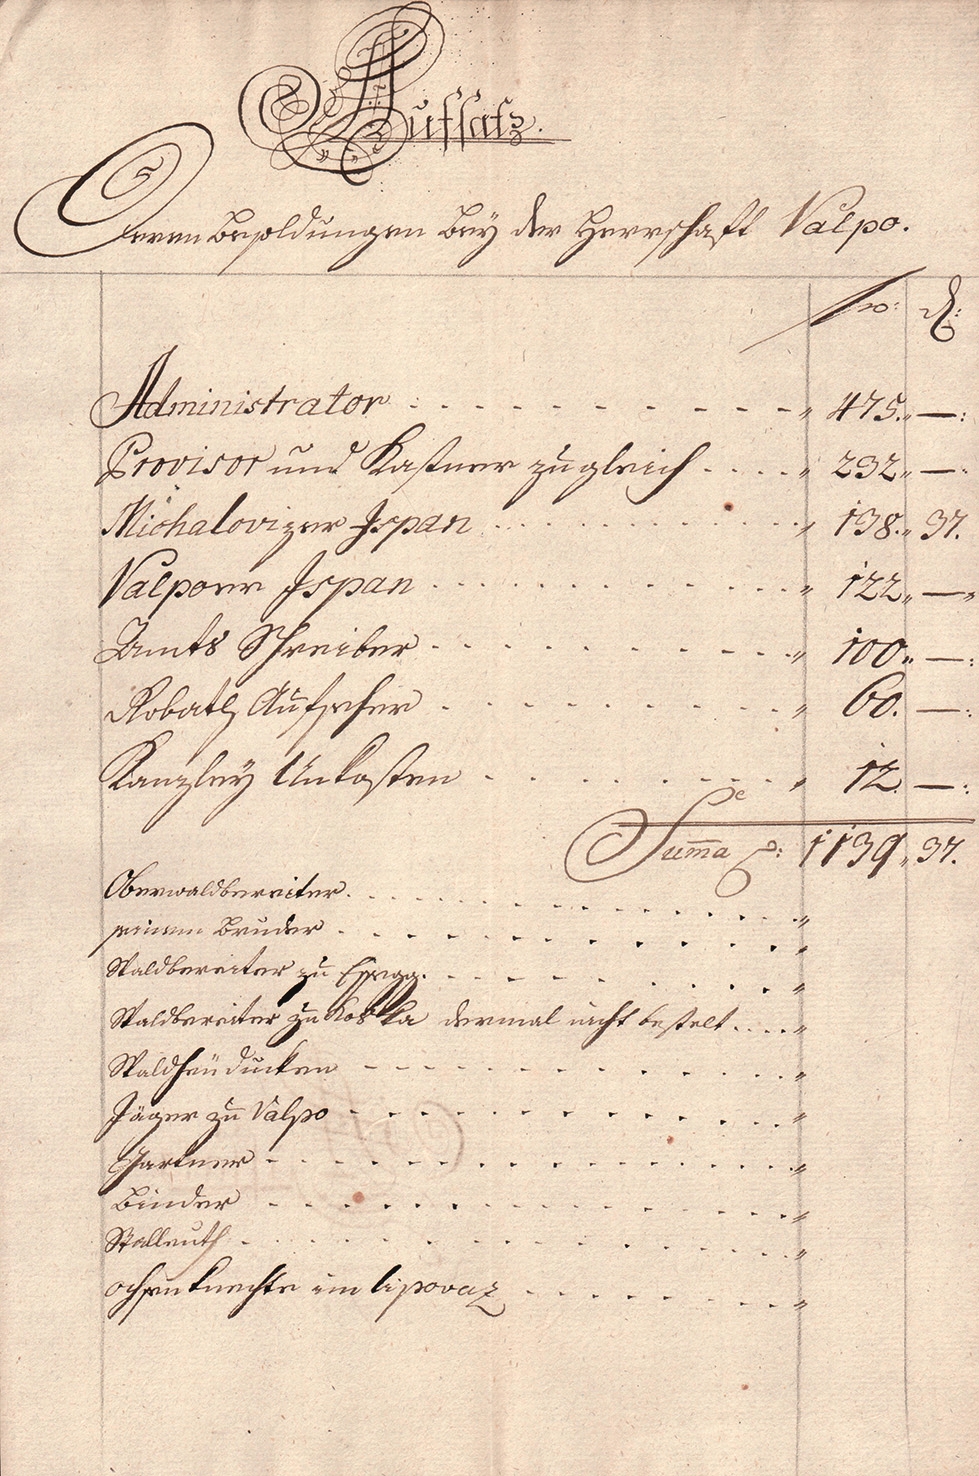 Aufsatz.
Deren Besoldungen Bey der Herrschaft Valpo.
fl: d:
Administrator 475. —
Provisor und Kastner zugleich 232 —
Michalovizer Ispan 138. 37.
Valpoer Ispan 122 —
Amts Schreiber 100 —
Robath Aufseher 60. —
Kanzley Unkosten 12 —
Summa 1139 37.
Oberwaldbereiter.
seinem Bruder
Waldbereiter zu Essegg.
Waldbereiter zu Koska dermal nicht bestelt
Waldheüducken
Jäger zu Valpo
Gartner
Binder
Stalleuth
ochsenknechte im lipovaz